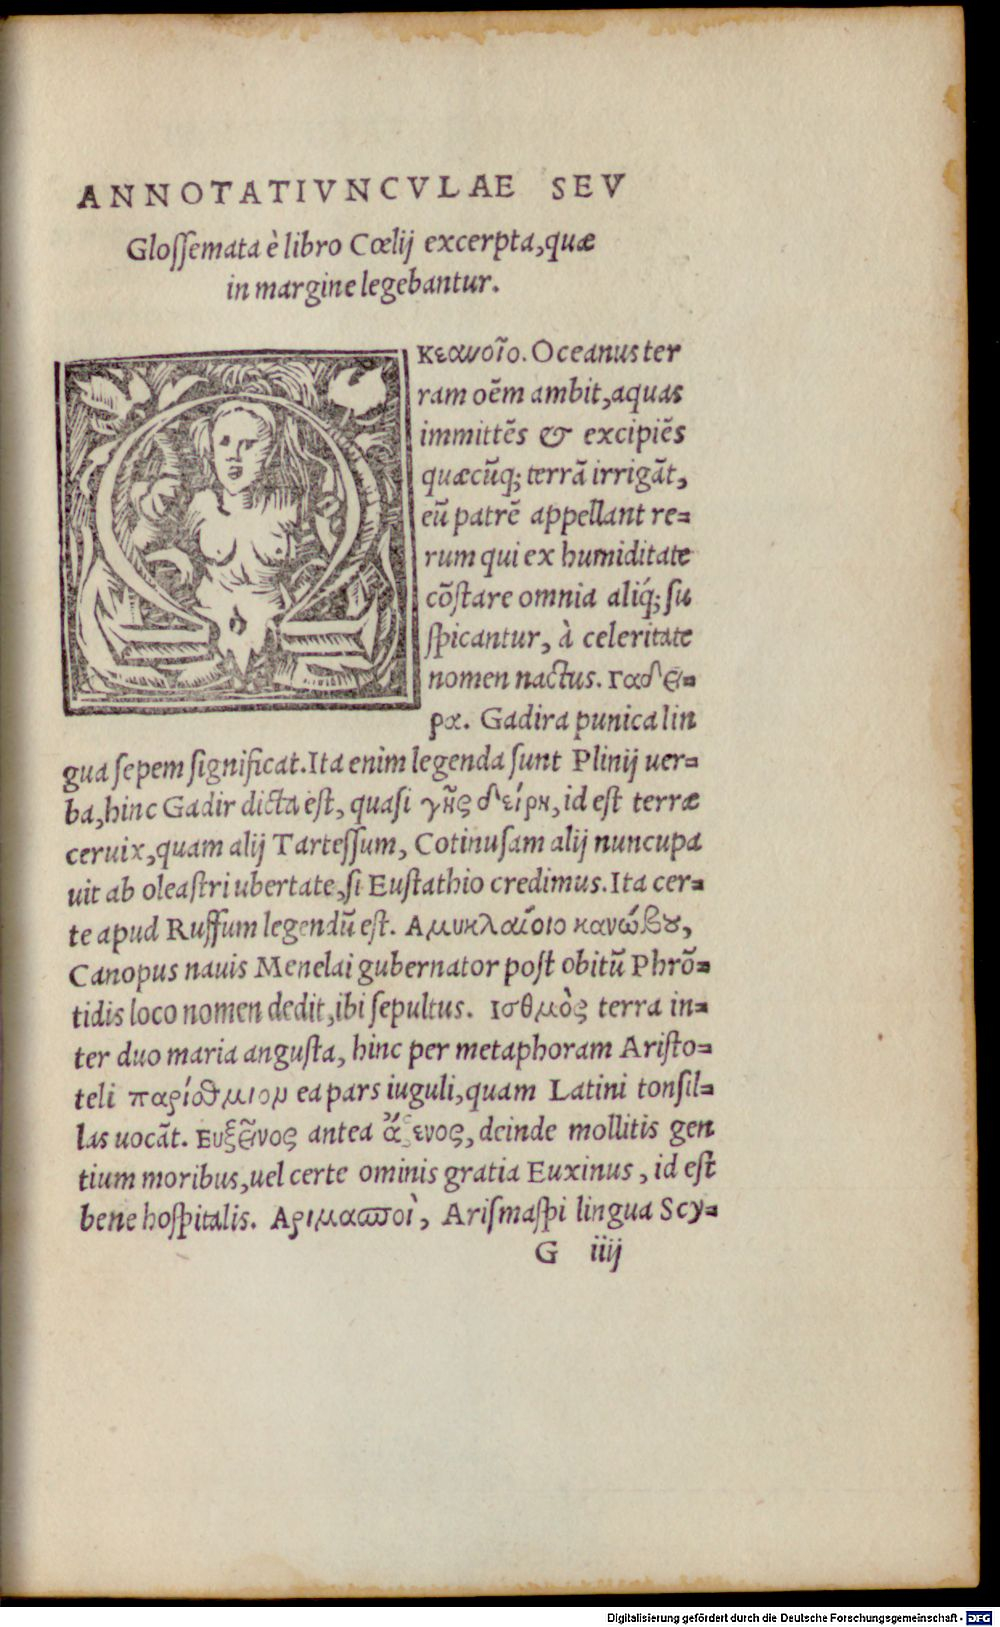 ANNOTATIVNCVLAE SEV
Glossemata è libro Cœlij excerpta, quæ
in margine legebantur.
Οκεανοῖο. Oceanus ter
ram oēm ambit, aquas
immittēs & excipiēs
quæcūq; terrā irrigāt,
eū patrē appellant re=
rum qui ex humiditate
cōstare omnia aliq́; su
spicantur, à celeritate
nomen nactus. Γαδει=
ρα. Gadira punica lin
gua sepem significat. Ita enim legenda sunt Plinij uer=
ba, hinc Gadir dicta est, quasi γῆς δείρη, id est terræ
ceruix, quam alij Tartessum, Cotinusam alij nuncupa
uit ab oleastri ubertate, si Eustathio credimus. Ita cer=
te apud Ruffum legendū est. Αμυκλαίοιο κανώβου,
Canopus nauis Menelai gubernator post obitū Phrō=
tidis loco nomen dedit, ibi sepultus. Ισθμὸς terra in=
ter duo maria angusta, hinc per metaphoram Aristo=
teli παρίσθμιον ea pars iuguli, quam Latini tonsil=
las uocāt. Ευξεῖνος antea ἄξενος, deinde mollitis gen
tium moribus, uel certe ominis gratia Euxinus, id est
bene hospitalis. Αριμασποὶ, Arismaspi lingua Scy=
G iiij
Digitalisierung gefördert durch die Deutsche Forschungsgemeinschaft - DFG